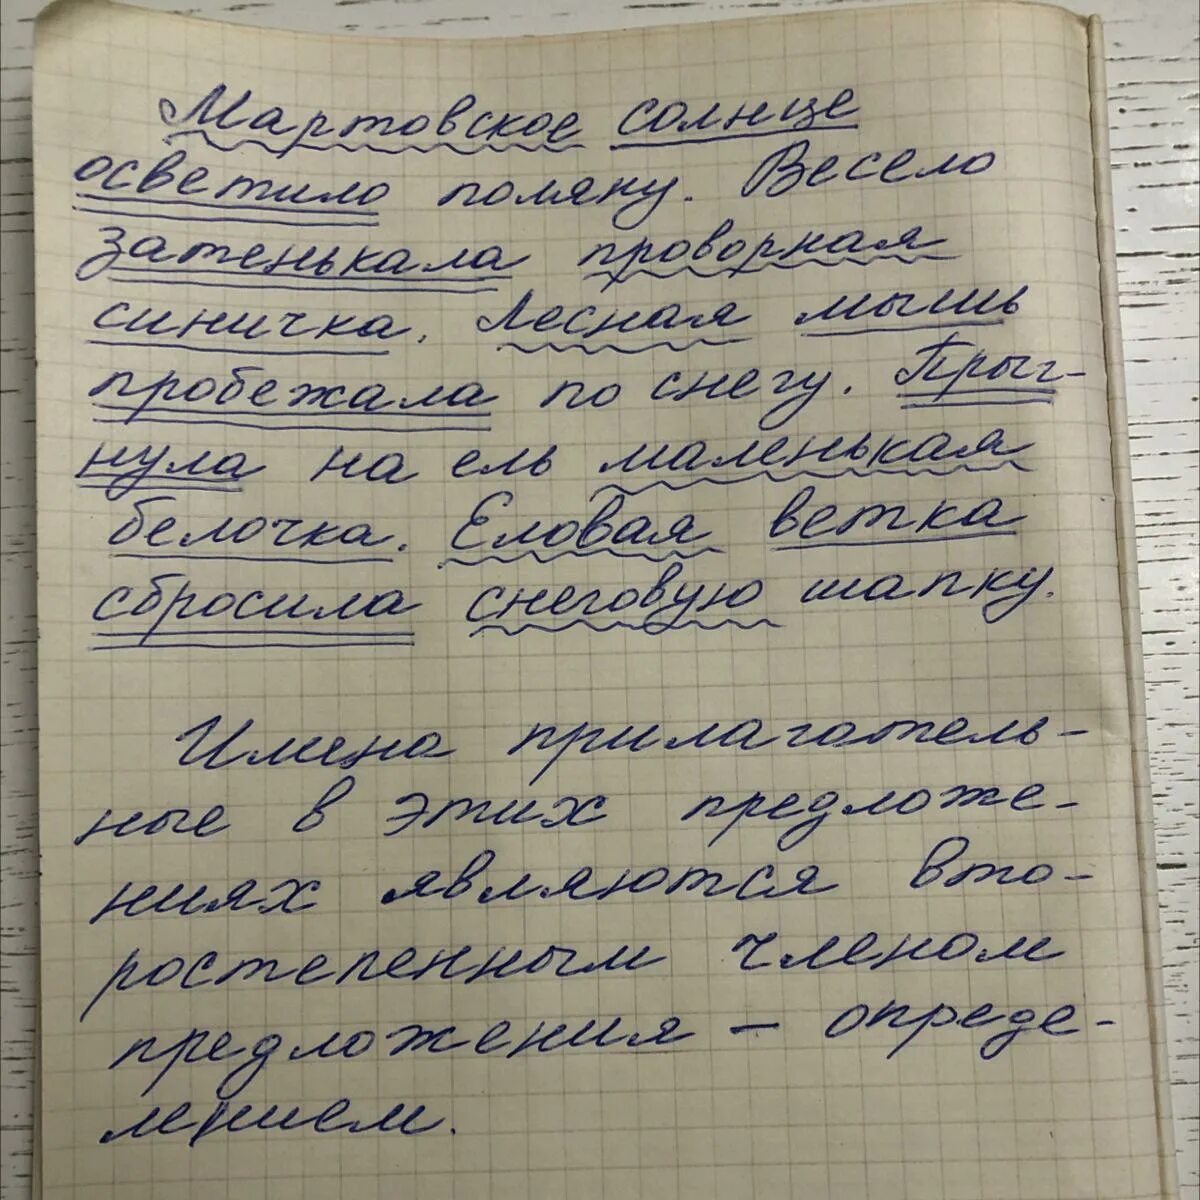 Мартовское солнце
осветило поляну. Весело
затенькала проворная
синичка. Лесная мышь
пробежала по снегу. Прыг-
нула на ель маленькая
белочка. Еловая ветка
сбросила снеговую шапку.
Имена прилагатель-
ные в этих предложе-
ниях являются вто-
ростепенным членом
предложения – опреде-
лением.